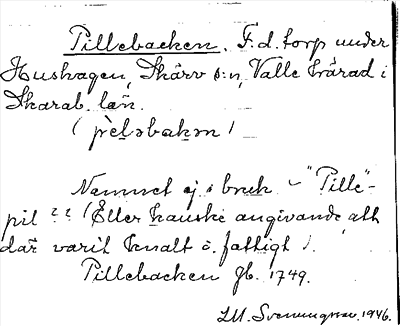 Pillebacken. F.d. torp under
Hushagen, Skärv s:n, Valle härad i
Skarab. län.
(pèləbakən)
Namnet ej i bruk - "Pille"-
pil ?? (Eller kanske angivande att
där varit knalt o. fattigt).
Pillebacken Jb. 1749.
Svenungsson. 1946.